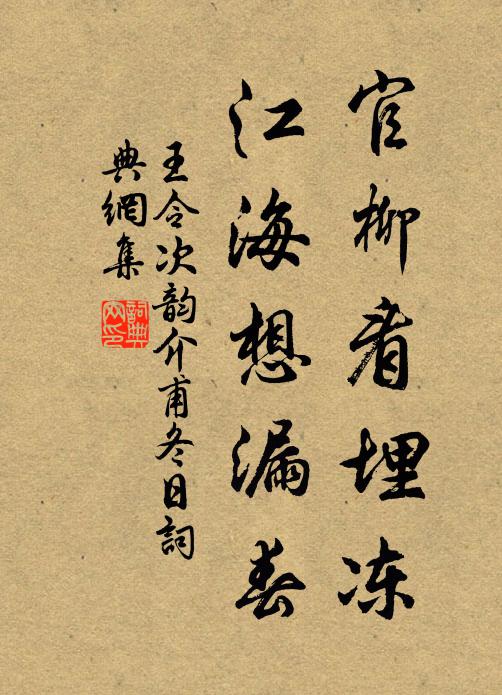 官柳看埋冻
江海想漏春
王令次韵介甫冬日詞
典網集
詞典
网印